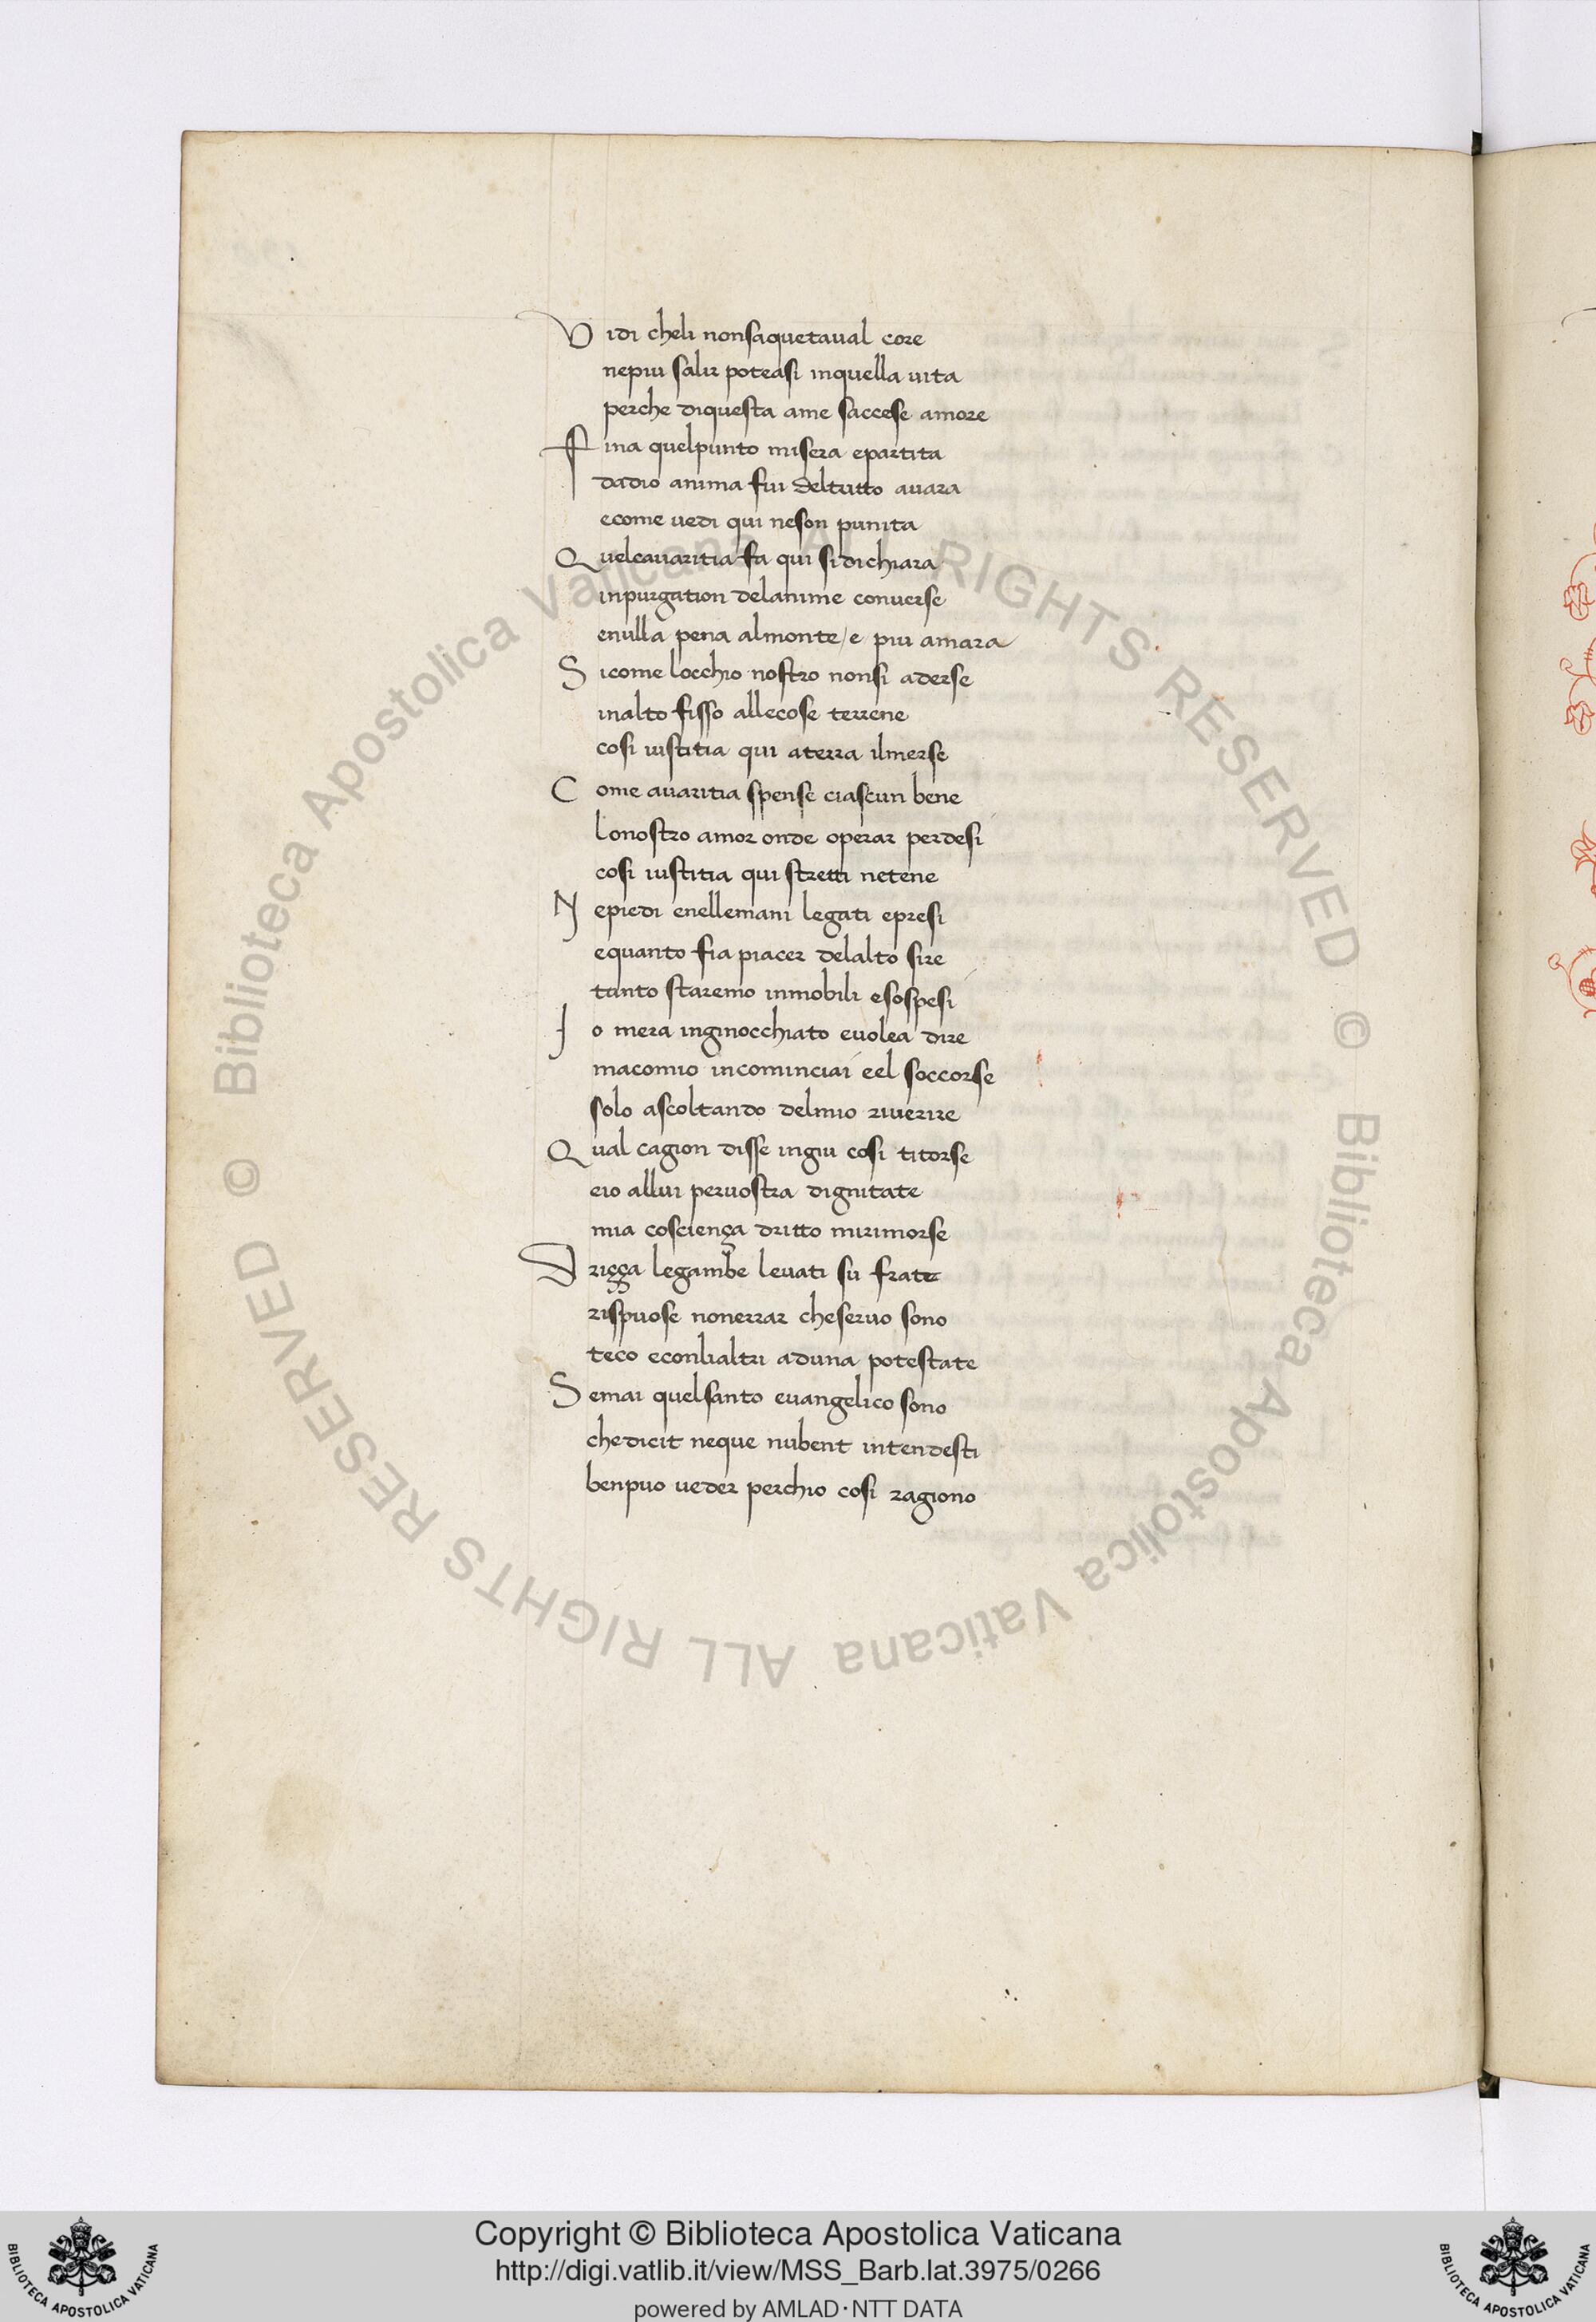 Vidi cheli nonsaquetaual core
nepiu salir poteasi inquella uita
perche diquesta ame saccese amore
Fina quelpunto misera epartita
dadio anima fui deltutto auara
ecome uedi qui neson punita
Quelcauaritia fa qui sidichiara
inpurgation delanime conuerse
enulla pena almonte/e piu amara
Sicome locchio nostro nonsi aderse
inalto fisso allecose terrene
cosi iustitia qui aterra ilmerse
Come auaritia spense ciascun bene
lonostro amor onde operar perdesi
cosi iustitia qui stretti netene
Nepiedi enellemani legati epresi
equanto fia piacer delalto sire
tanto staremo inmobili esospesi
Io mera inginocchiato euolea dire
macomio incominciai eel soccorse
solo ascoltando delmio riuerire
Qual cagion disse ingiu cosi titorse
eio allui peruostra dignitate
mia cosciença dritto mirimorse
Driçça legambe leuati su frate
rispuose nonerrar cheseruo sono
teco econlialtri aduna potestate
Semai quelsanto euangelico sono
chedicit neque nubent intendesti
benpuo ueder perchio cosi ragiono
© Biblioteca Apostolica Vaticana ALL RIGHTS RESERVED © Biblioteca Apostolica Vaticana ALL RIGHTS RESERVED
BIBLIOTECA APOSTOLICA VATICANA
Copyright © Biblioteca Apostolica Vaticana
http://digi.vatlib.it/view/MSS_Barb.lat.3975/0266
powered by AMLAD·NTT DATA
BIBLIOTECA APOSTOLICA VATICANA